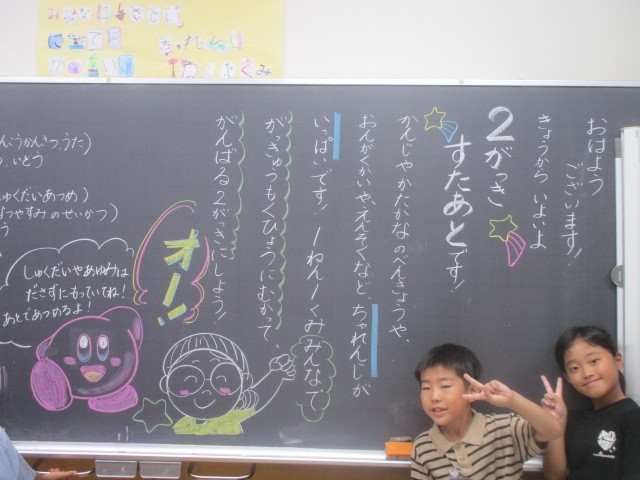 おはよう
ございます！
きょうから いよいよ
2がっき
すたあとです！
かんじやかたかなのべんきょうや、
おんがくかいや、えんそくなど ちゃれんじが
いっぱいです！ 1ねん1くみみんなで
がっきゅうもくひょうにむかって、
がんばる2がっきにしよう！
オー！
しゅくだいやあゆみは
ださずにもっていてね！
あとであつめるよ！
んこうかんきつ、うた）
いどう
ゅくだいあつめ）
つやすみのせいかつ）
う